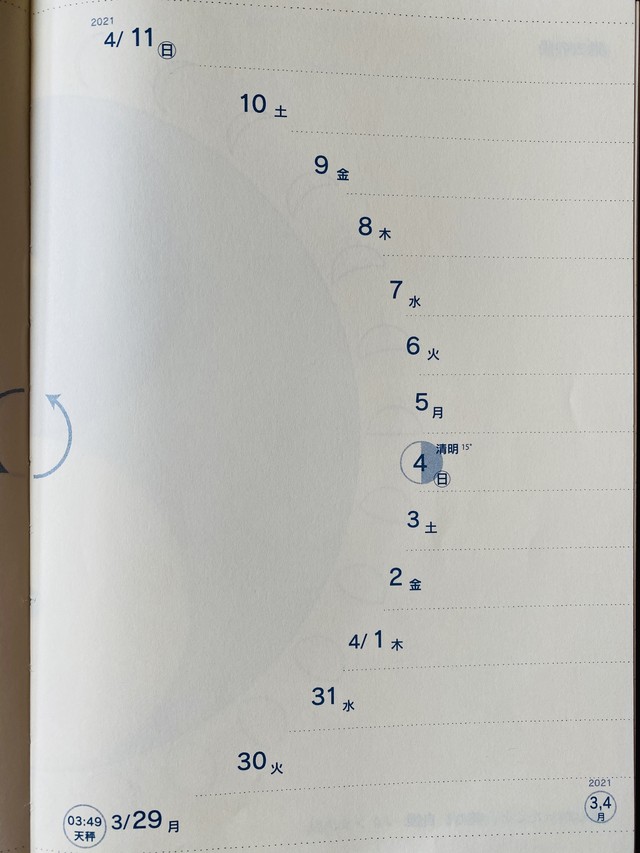 2021
4/ 11 日
10 土
9 金
8 木
7 水
6 火
5 月
清明 15°
4 日
3 土
2 金
4/ 1 木
31 水
30 火
03:49
天秤
3/29 月
2021
3,4
月